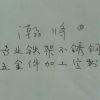 将
专业铁架不锈钢
五金件加工定制